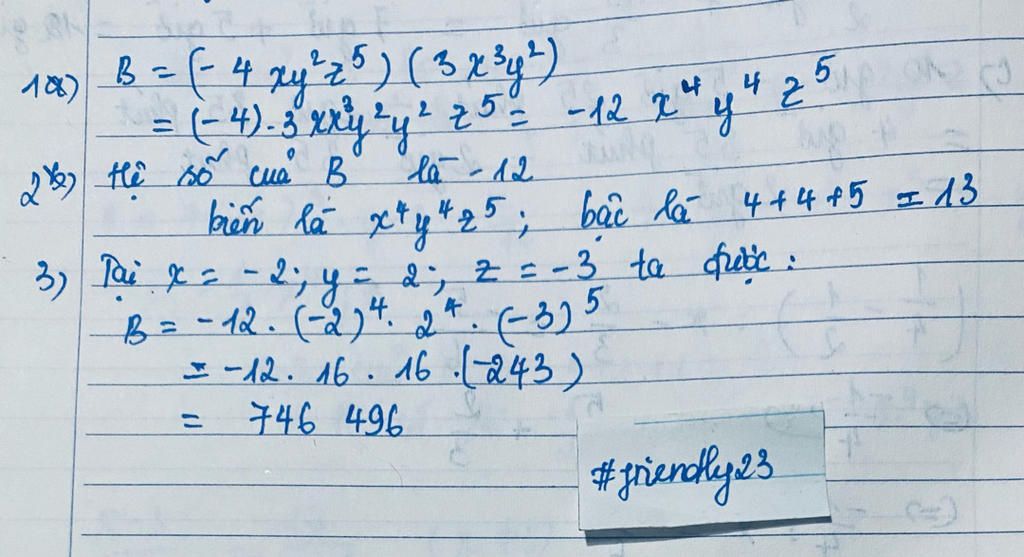 1a) B = (- 4 xy²z⁵) (3x³y²)
= (-4).3xx³y²y² z⁵ = -12 x⁴y⁴z⁵
2) Hệ số của B là -12
biến là x⁴y⁴z⁵; bậc là 4+4+5 = 13
3) Tại x = -2; y = 2; z = -3 ta được:
B = -12. (-2)⁴. 2⁴. (-3)⁵
= -12. 16. 16 .(-243)
= 746 496
#friendly23